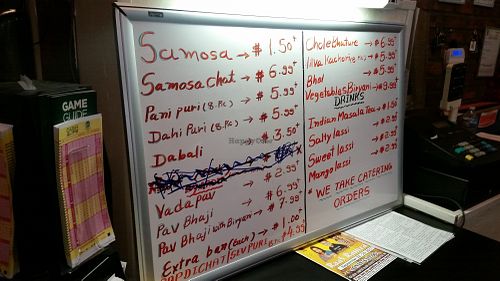 Samosa → $1.50+
Samosa chat → $6.99+
Pani puri (8.Pc) → $5.99+
Dahi Puri (8.Pc) → $5.99+
Dabali → $3.50+
Vadapav → $2.99+
Pav Bhaji → $6.99+
Pav Bhaji with Biryani → $7.99+
Extra bun (Each) → $1.00+
PAPDICHAT/SEVPURI $4.99
Chole Bhature → $6.99+
Lilva Kachori → $5.99+
Bhel → $5.99+
Vegetables Biryani → $9.99+
DRINKS
Indian Masala Tea → $1.50
Salty lassi → $2.99
Sweet lassi → $2.99
Mango lassi → $2.99
* WE TAKE CATERING
ORDERS
GAME
GUIDE
HappyCow